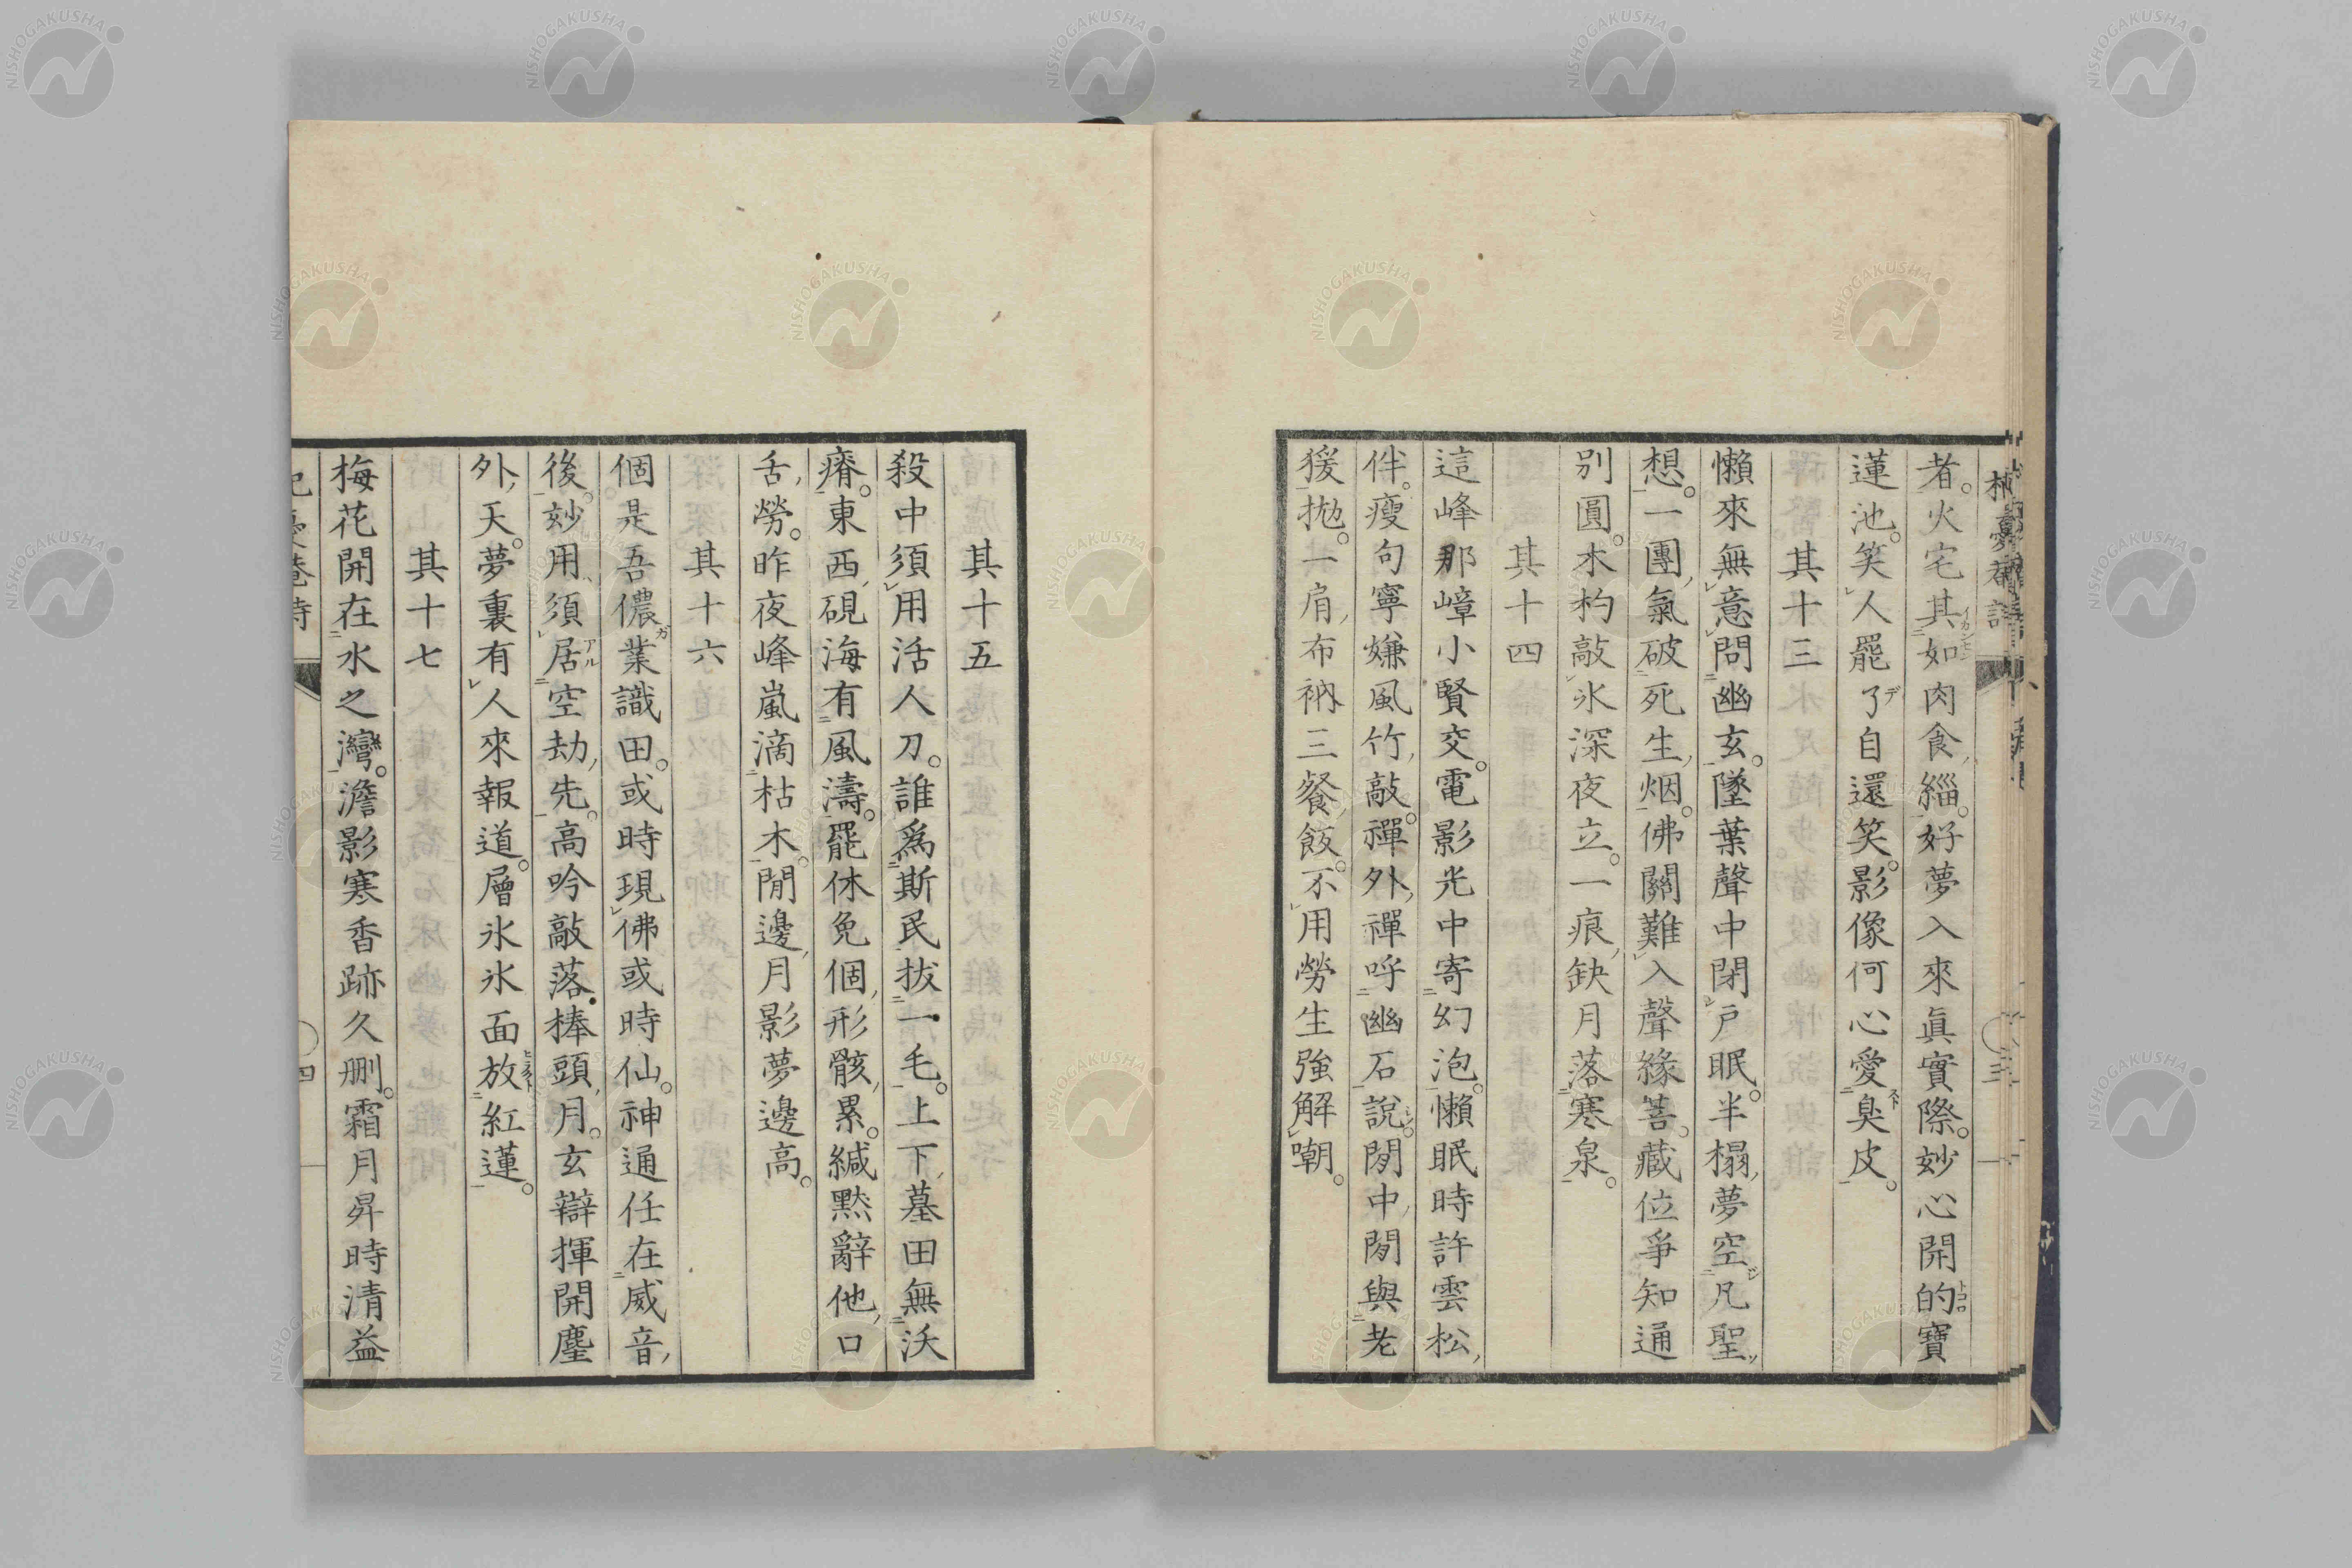 者。火宅其如肉食緇。好夢入來眞實際。妙心開的寶
蓮池。笑人罷了自還笑。影像何心愛臭皮。
其十三
懶來無意問幽玄。墜葉聲中閉戸眠。半榻夢空凡聖
想。一團氣破死生烟。佛關難入聲緣菩。藏位爭知通
別圓。木杓敲氷深夜立。一痕缺月落寒泉。
其十四
這峰那嶂小賢交。電影光中寄幻泡。懶眠時許雲松
伴。瘦句寧嫌風竹敲。禪外禪呼幽石說。閒中閒與老
猨拋。一肩布衲三餐飯。不用勞生強解嘲。
其十五
殺中須用活人刀。誰爲斯民拔一毛。上下墓田無沃
瘠。東西硯海有風濤。罷休免個形骸累。緘默辭他口
舌勞。昨夜峰嵐滴枯木。閒邊月影夢邊高。
其十六
個是吾儂業識田。或時現佛或時仙。神通任在威音
後。妙用須居空劫先。高吟敲落棒頭月。玄辯揮開塵
外天。夢裏有人來報道。層氷氷面放紅蓮。
其十七
梅花開在水之灣。澹影寒香跡久刪。霜月昇時清益
四